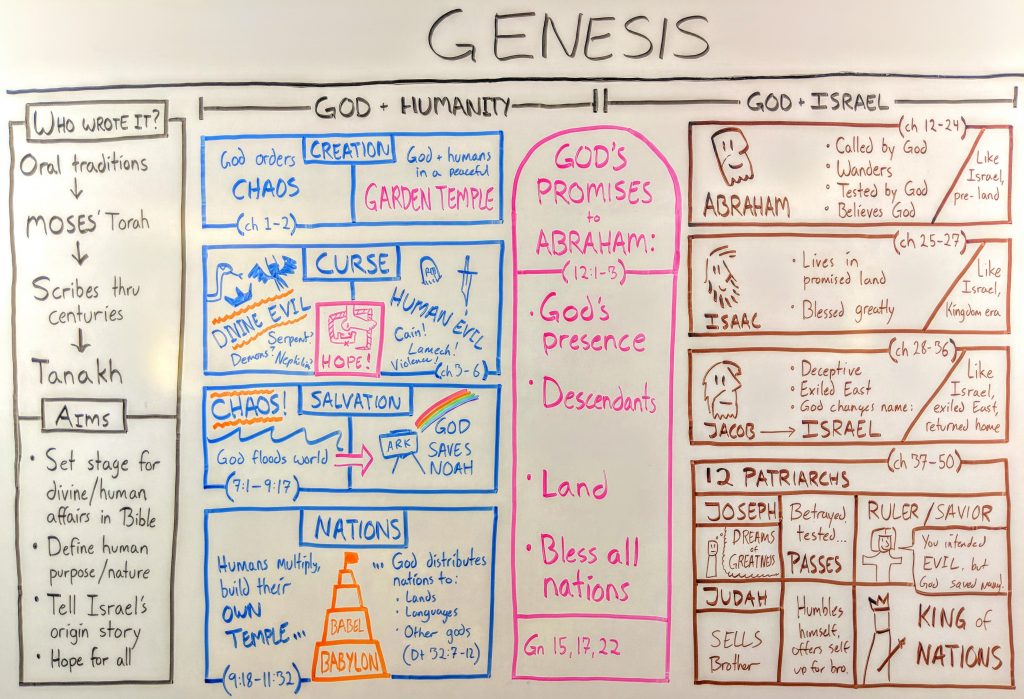 GENESIS
WHO WROTE IT?
Oral traditions
MOSES' Torah
Scribes thru
centuries
Tanakh
AIMS
• Set stage for
divine/human
affairs in Bible
• Define human
purpose/nature
• Tell Israel's
origin story
• Hope for all
GOD + HUMANITY
CREATION
God orders
CHAOS
God + humans
in a peaceful
GARDEN TEMPLE
(ch 1-2)
CURSE
DIVINE EVIL
Serpent?
Demons? Nephilim?
HOPE!
RIP
HUMAN EVIL
Cain!
Lamech!
Violence!
(ch 3-6)
CHAOS!
SALVATION
God floods world
ARK
GOD
SAVES
NOAH
(7:1-9:17)
NATIONS
Humans multiply,
build their
OWN
TEMPLE...
BABEL
BABYLON
... God distributes
nations to:
• Lands
• Languages
• Other gods
(Dt 32:7-12)
(9:18-11:32)
GOD'S
PROMISES
to
ABRAHAM:
(12:1-3)
• God's
presence
• Descendants
• Land
• Bless all
nations
Gn 15, 17, 22
GOD + ISRAEL
(ch 12-24)
ABRAHAM
• Called by God
• Wanders
• Tested by God
• Believes God
Like
Israel,
pre-land
(ch 25-27)
ISAAC
• Lives in
promised land
• Blessed greatly
Like
Israel,
Kingdom era
(ch 28-36)
JACOB → ISRAEL
• Deceptive
• Exiled East
• God changes name:
Like
Israel,
exiled East,
returned home
(ch 37-50)
12 PATRIARCHS
JOSEPH
DREAMS
of
GREATNESS
Betrayed,
tested...
PASSES
RULER/SAVIOR
You intended
EVIL, but
God saved many.
JUDAH
SELLS
Brother
Humbles
himself,
offers self
up for bro.
KING of
NATIONS